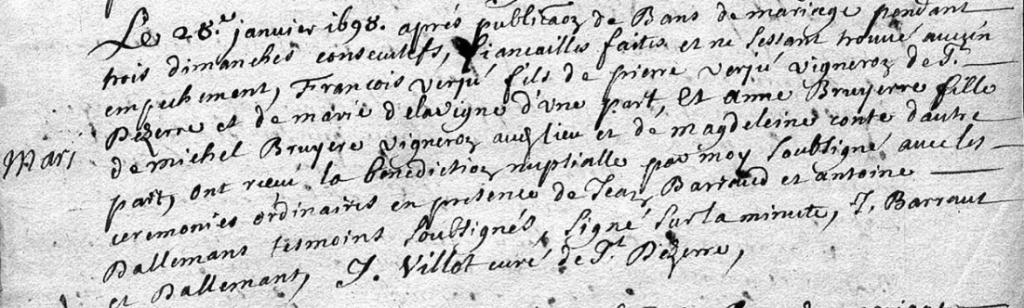 Le 28.e janvier 1698. aprés publicãon de Bans de mariage pendant
trois dimanches consecutifs, fiancailles faites et ne sestant trouvé aucun
empechement, Francois verjú fils de pierre verjú vigneron de St.
Dezerre et de marie delavigne d'une part, et anne Bruyerre fille
Mari de michel Bruyere vigneron audt lieu et de magdeleine conte dautre
part, ont receu la benediction nuptialle par moy soubsigné avec les
ceremonies ordinaires en presence de Jean Barraud et antoine
Dallemant tesmoins soubsignés, signé sur la minute, J. Barraut
et Dallemant, J. Villot curé de St. Dezerre,